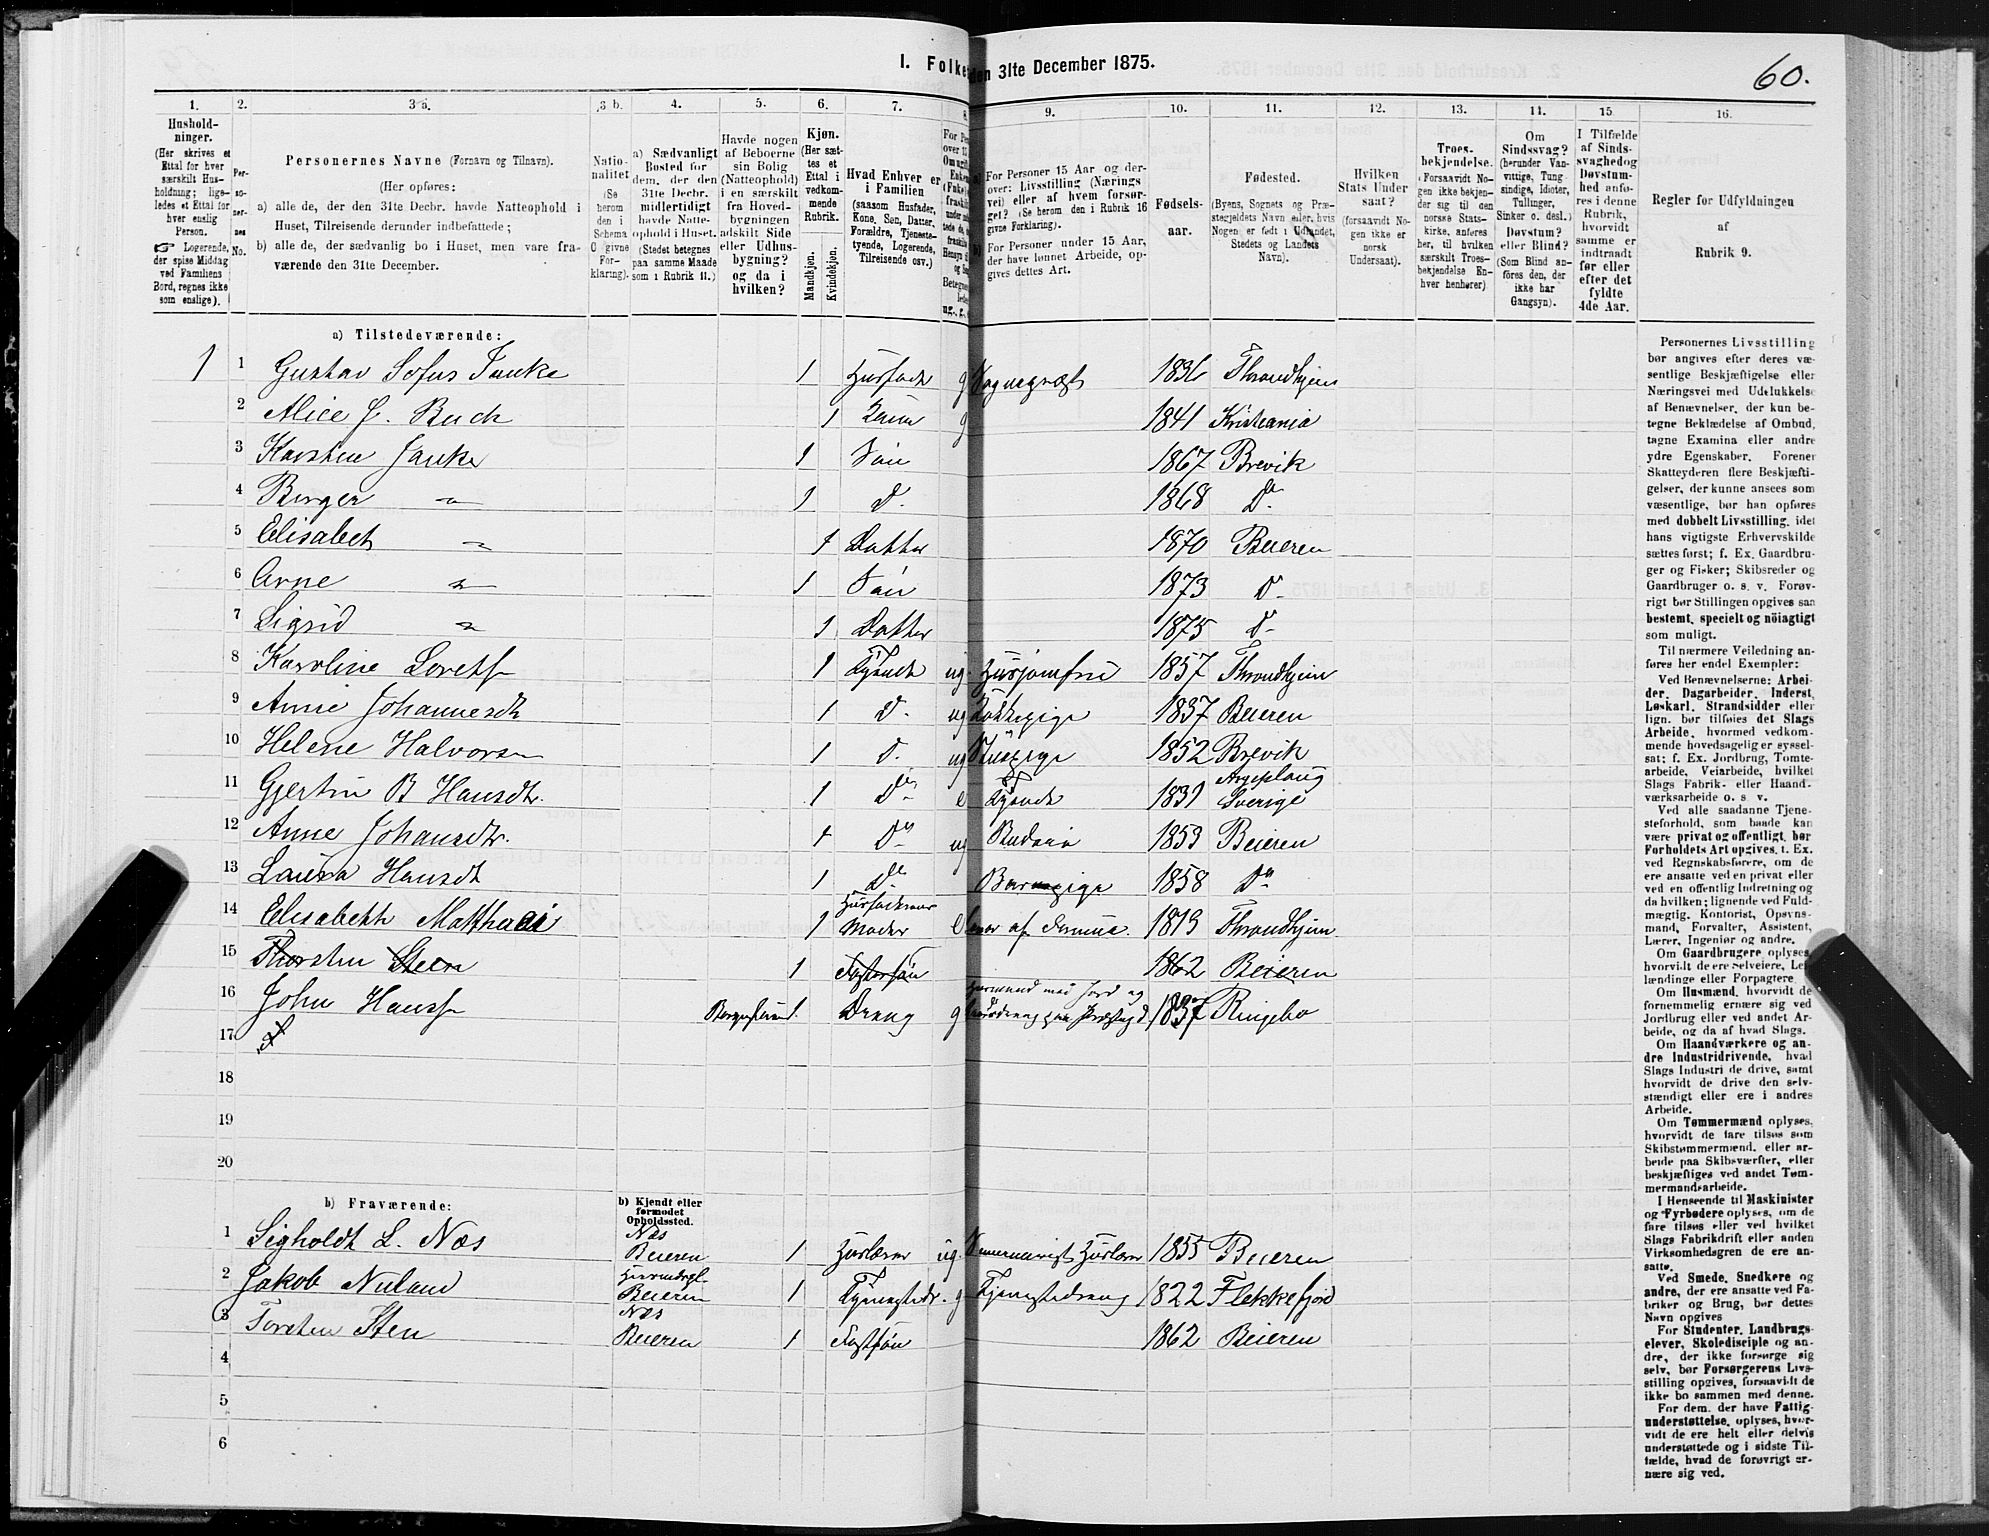 I. Folke den 31te December 1875.
60.
1. 2. 3 a. 3 b. 4. 5. 6. 7. 8. 9. 10. 11. 12. 13. 14. 15 16.
Hushold-
ninger.
(Her skrives et
Ettal for hver
særskilt Hus-
holdning; lige-
ledes et Ettal for
hver enslig
Person.
☞ Logerende,
der spise Middag
ved Familiens
Bord, regnes ikke
som enslige).
Per-
so-
ner-
nes
No.
Personernes Navne (Fornavn og Tilnavn).
(Her opføres:
a) alle de, der den 31te Decbr. havde Natteophold i
Huset, Tilreisende derunder indbefattede;
b) alle de, der sædvanlig bo i Huset, men vare fra-
værende den 31te December.
Natio-
nalitet
(Se
herom
den i
Schema
O givne
For-
klaring).
a) Sædvanligt
Bosted for
dem, der den
31te Decbr.
midlertidigt
havde Natte-
ophold i Huset.
(Stedet betegnes
paa samme Maade
som i Rubrik 11.)
Havde nogen
af Beboerne
sin Bolig
(Natteophold)
i en særskilt
fra Hoved-
bygningen
adskilt Side
eller Udhus-
bygning?
og da i
hvilken?
Kjøn.
(Her sæt-
tes et
Ettal i
vedkom-
mende
Rubrik.
Mandkjøn.
Kvindekjøn.
Hvad Enhver er
i Familien
(saasom Husfader,
Kone, Søn, Datter,
Forældre, Tjeneste-
tyende, Logerende,
Tilreisende osv.)
a) For Personer 15 Aar og der-
over: Livsstilling (Nærings
vei) eller af hvem forsør-
get? (Se herom den i Rubrik 16
givne Forklaring).
b) For Personer under 15 Aar,
der have lønnet Arbeide, op-
gives dettes Art.
Fødsels-
aar.
Fødested.
(Byens, Sognets og Præ-
stegjeldets Navn eller, hvis
Nogen er født i Udlandet,
Stedets og Landets
Navn).
Hvilken
Stats Under
saat?
(forsaavidt No-
gen ikke er
norsk
Undersaat).
Troes-
bekjendelse.
(Forsaavidt No-
gen ikke bekjen-
der sig til den
norske Stats-
kirke, anføres
her, til hvilken
særskilt Troes-
bekjendelse En-
hver henhører)
Om
Sindssvag?
(herunder Van-
vittige, Tung-
sindige, Idioter,
Tullinger,
Sinker o. desl.)
Døvstum?
eller Blind?
(Som Blind an-
føres den, der
ikke har
Gangsyn).
I Tilfælde
af Sinds-
svaghedog
Døvstum-
hed anfø-
res i denne
Rubrik,
hvorvidt
samme er
indtraadt
før eller
efter det
fyldte
4de Aar.
Regler for Udfyldningen
af
Rubrik 9.
a) Tilstedeværende:
1 1 Gustav Sofus Janke 1 Husfader g Sognepræst 1836 Throndhjem
2 Alice J. Buch 1 Kone g 1841 Kristiania
3 Karsten Janke 1 Søn 1867 Brevik
4 Birger " 1 D. 1868 Do
5 Elisabet " 1 Datter 1870 Beieren
6 Arne " 1 Søn 1873 D-
7 Sigrid " 1 Datter 1875 D-
8 Karoline 1 Tyende ug. Husjomfru 1857 Throndhjem
9 Anne Johannesdtr 1 D. ug Kokkepige 1837 Beieren
10 Helene Halvorsn 1 D. ug Stuepige 1852 Brevik
11 Gjertin B Hansdtr. 1 Do e Tyende 1831 Sverige
12 Anne Johansdtr. 1 Do ug Budeie 1853 Beieren
13 Laura Hansdt 1 De Barnepige 1858 Do
14 Elisabeth Matthaei 1 Husfaderens Moder e Lever af Formue 1813 Throndhjem
15 Thorsten Steen 1 Fostersøn 1862 Beieren
16 John Hanss 1 Dreng g Husmand med Jord og 1837 Ringebo
17
18
19
20
b) Fraværende:
b) Kjendt eller
formodet
Opholdssted.
1 Sigholdt L. Næs Næs Beieren 1 Huslærer ug. Seminarist Huslærer 1855 Beieren
2 Jakob Nuland Beieren 1 Tjenestedr. g Tjenestedreng 1822 Flekkefjord
3 Torsten Sten Næs Beieren 1 Fostsøn 1862 Beieren
4
5
6
Personernes Livsstilling
bør angives efter deres væ-
sentlige Beskjæftigelse eller
Næringsvei med Udelukkelse
af Benævnelser, der kun be-
tegne Beklædelse af Ombud,
tagne Examina eller andre
ydre Egenskaber. Forener
Skatteyderen flere Beskjæfti-
gelser, der kunne ansees som
væsentlige, bør han opføres
med dobbelt Livsstilling, idet
hans vigtigste Erhvervskilde
sættes først; f. Ex. Gaardbru-
ger og Fisker; Skibsreder og
Gaardbruger o. s. v. Forøv-
rigt bør Stillingen opgives saa
bestemt, specielt og nöiagtigt
som muligt.
Til nærmere Veiledning an-
føres her endel Exempler:
Ved Benævnelserne: Arbei-
der, Dagarbeider, Inderst,
Løskarl, Strandsidder eller
lign. bør tilføies det Slags
Arbeide, hvormed vedkom-
mende hovedsagelig er syssel-
sat; f. Ex. Jordbrug, Tomte-
arbeide, Veiarbeide, hvilket
Slags Fabrik- eller Haand-
værksarbeide o. s. v.
Ved alle saadanne Tjene-
steforhold, som baade kan
være privat og offentligt, bør
Forholdets Art opgives, t. Ex.
ved Regnskabsførere, om de
ere ansatte ved en privat eller
ved en offentlig Indretning og
da hvilken; lignende ved Fuld-
mægtig, Kontorist, Opsyns-
mand, Forvalter, Assistent,
Lærer, Ingeniør og andre.
Om Gaardbrugere oplyses,
hvorvidt de ere Selveiere, Lei-
lændinge eller Forpagtere
Om Husmænd, hvorvidt de
fornemmelig ernære sig ved
Jordbrug eller ved andet Ar-
beide, og da af hvad Slags.
Om Haandværkere og an-
dre Industridrivende, hvad
Slags Industri de drive, samt
hvorvidt de drive den selv-
stændigt eller ere i andres
Arbeide.
Om Tømmermænd oplyses,
hvorvidt de fare tilsøs som
Skibstømmermænd, eller ar-
beide paa Skibsværfter, eller
beskjæftiges ved andet Tøm-
mermandsarbeide.
I Henseende til Maskinister
og Fyrbødere oplyses, om de
fare tilsøs eller ved hvilket
Slags Fabrikdrift eller anden
Virksomhedsgren de ere an-
satte.
Ved Smede, Snedkere og
andre, der ere ansatte ved Fa-
briker og Brug, bør dettes
Navn opgives
For Studenter, Landbrugs-
elever, Skoledisciple og an-
dre, der ikke forsørge sig
selv, bør Forsørgerens Livs-
stilling opgives, forsaavidt de
ikke bo sammen med denne.
For dem, der have Fattig-
understøttelse, oplyses, hvor-
vidt de ere helt eller delvis
understøttede og i sidste Til-
fælde, hvad de forøvrigt er-
nære sig ved.